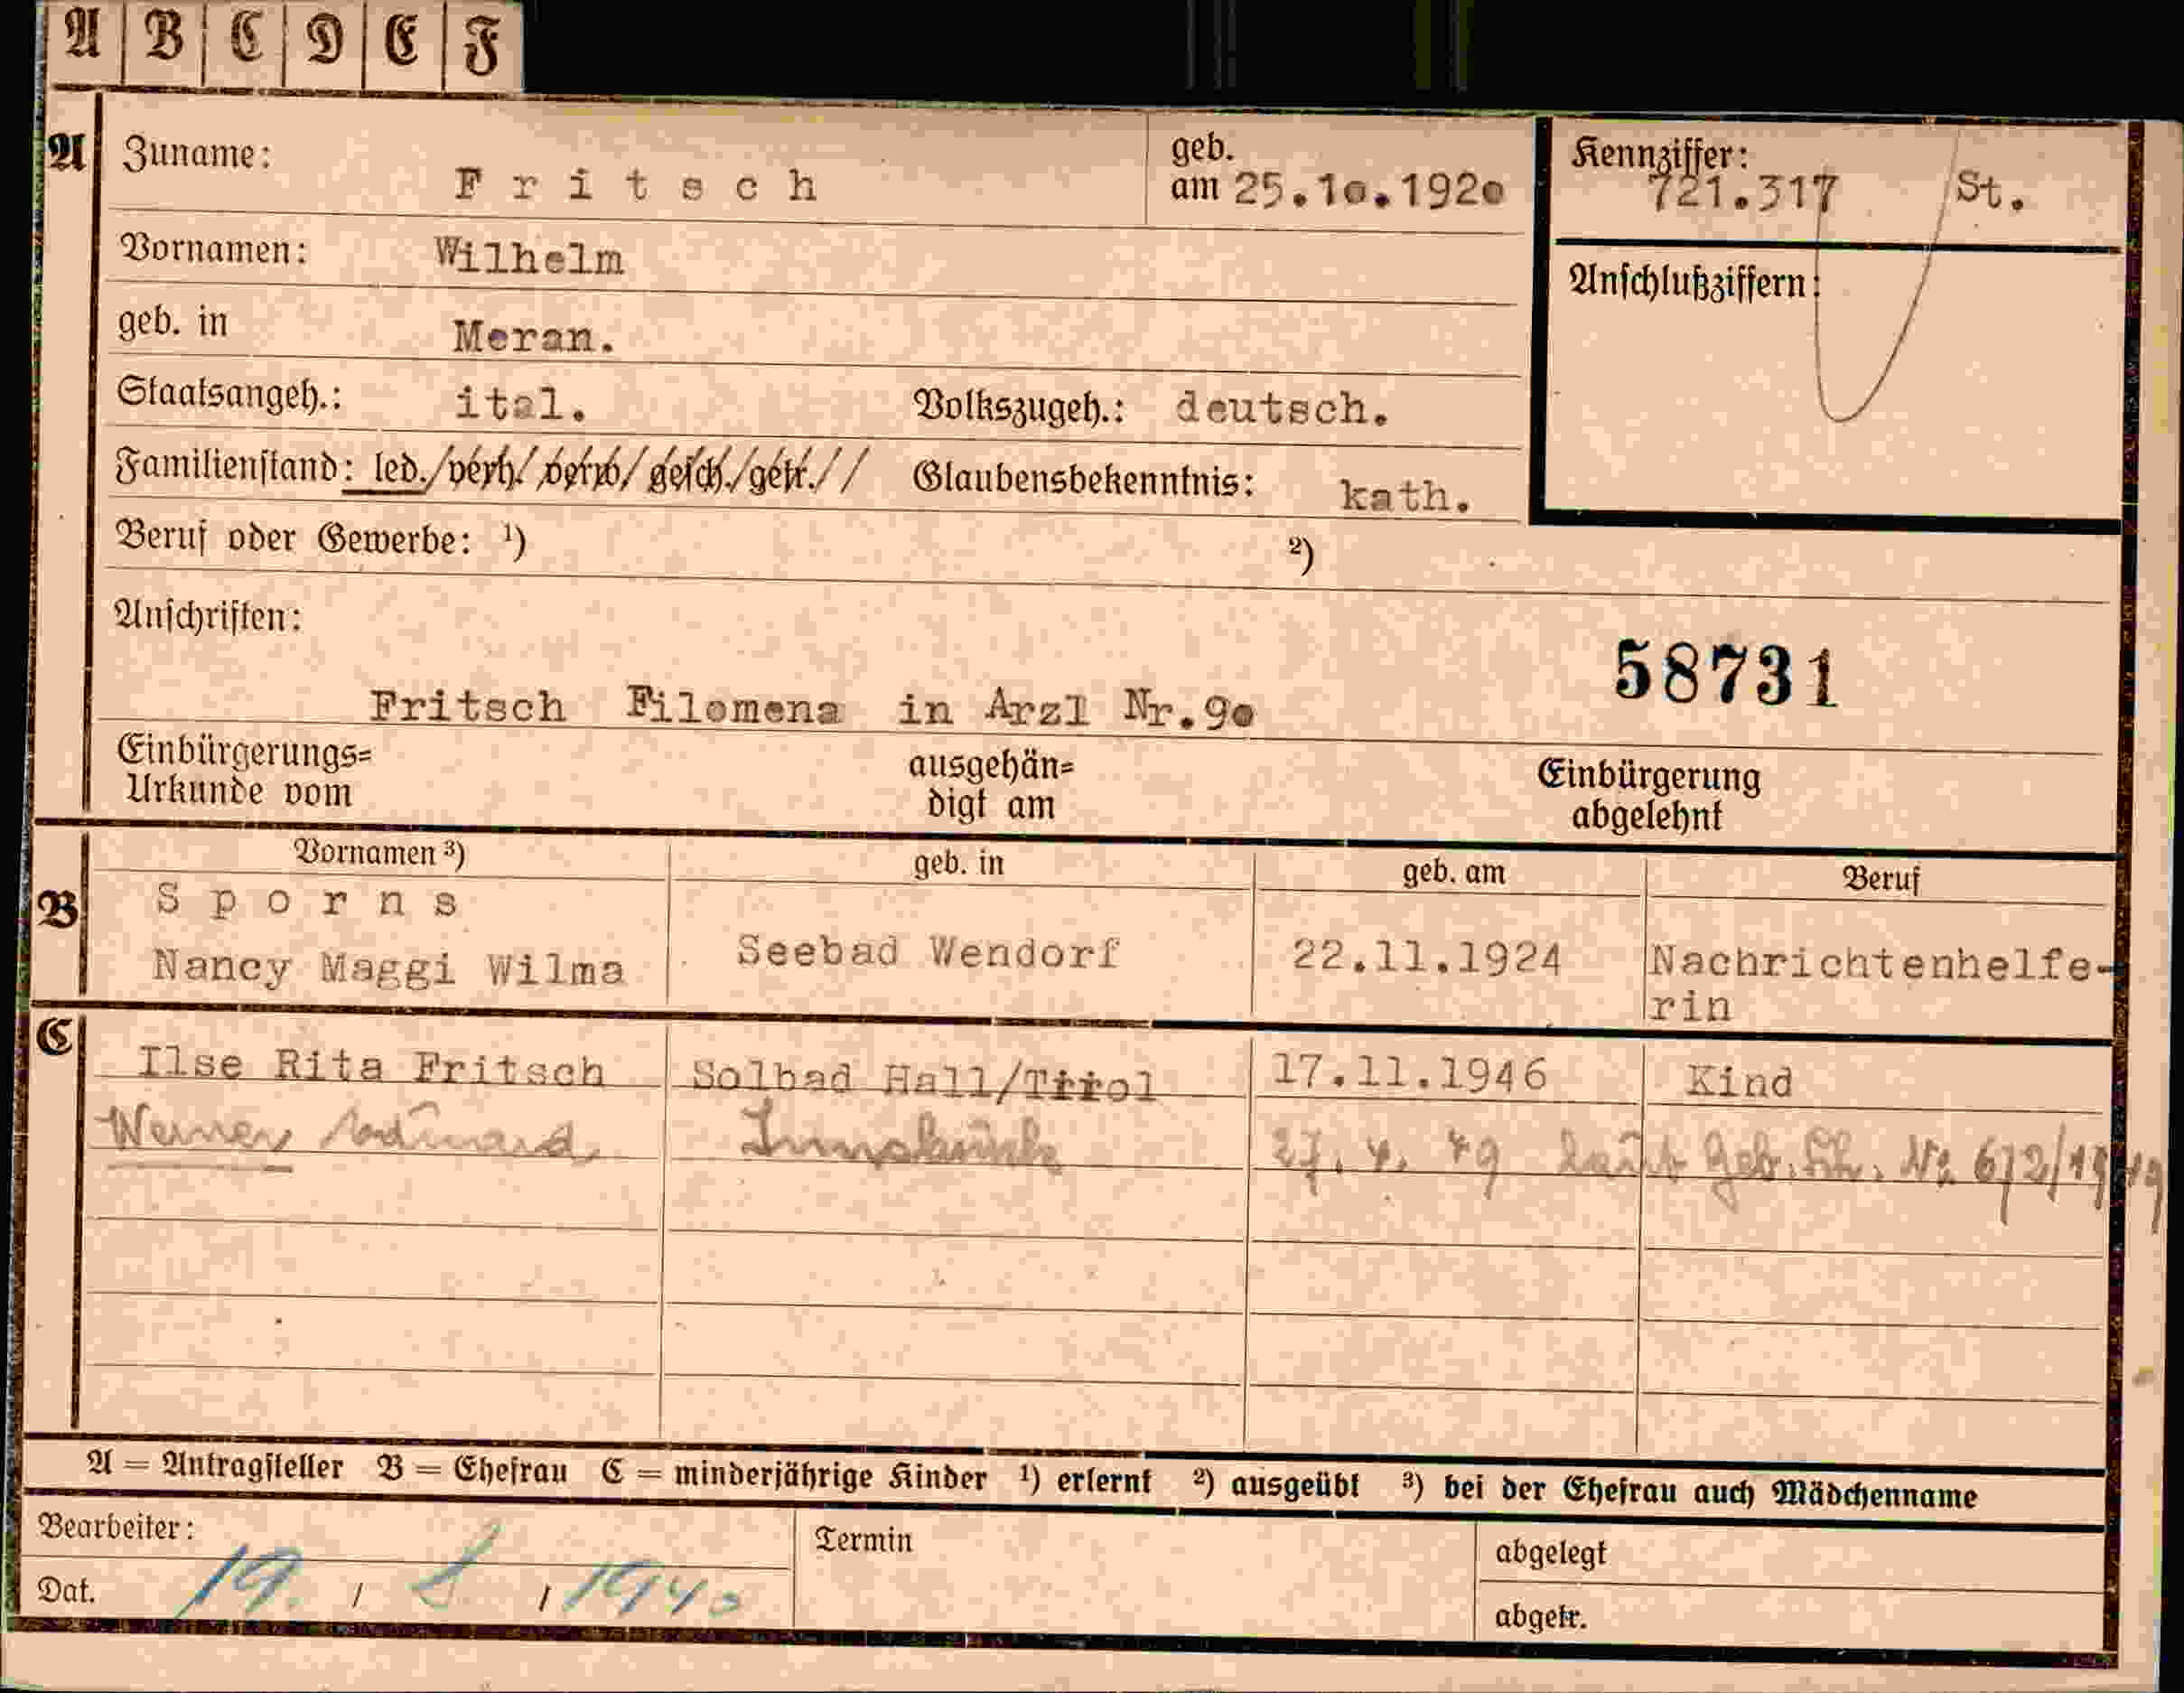 A B C D E F
A Zuname: Fritsch geb. am 25.10.1920 Kennziffer: 721.317 St.
Vornamen: Wilhelm
Anschlußziffern:
geb. in Meran.
Staatsangeh.: ital. Volkszugeh.: deutsch.
Familienstand: led./verh./verw/gesch./getr.// Glaubensbekenntnis: kath.
Beruf oder Gewerbe: ¹) ²)
Anschriften:
58731
Fritsch Filomena in Arzl Nr.90
Einbürgerungs=
Urkunde vom
ausgehän=
digt am
Einbürgerung
abgelehnt
Vornamen ³) geb. in geb. am Beruf
B Sporns
Nancy Maggi Wilma Seebad Wendorf 22.11.1924 Nachrichtenhelfe-
rin
C
Ilse Rita Fritsch Solbad Hall/Tirol 17.11.1946 Kind
Werner Innsbruck 27. 4. 49 laut Geb. Nr 672/1949
A = Antragsteller B = Ehefrau C = minderjährige Kinder ¹) erlernt ²) ausgeübt ³) bei der Ehefrau auch Mädchenname
Bearbeiter:
Termin
abgelegt
Dat. 19. / 8 / 1940
abgetr.